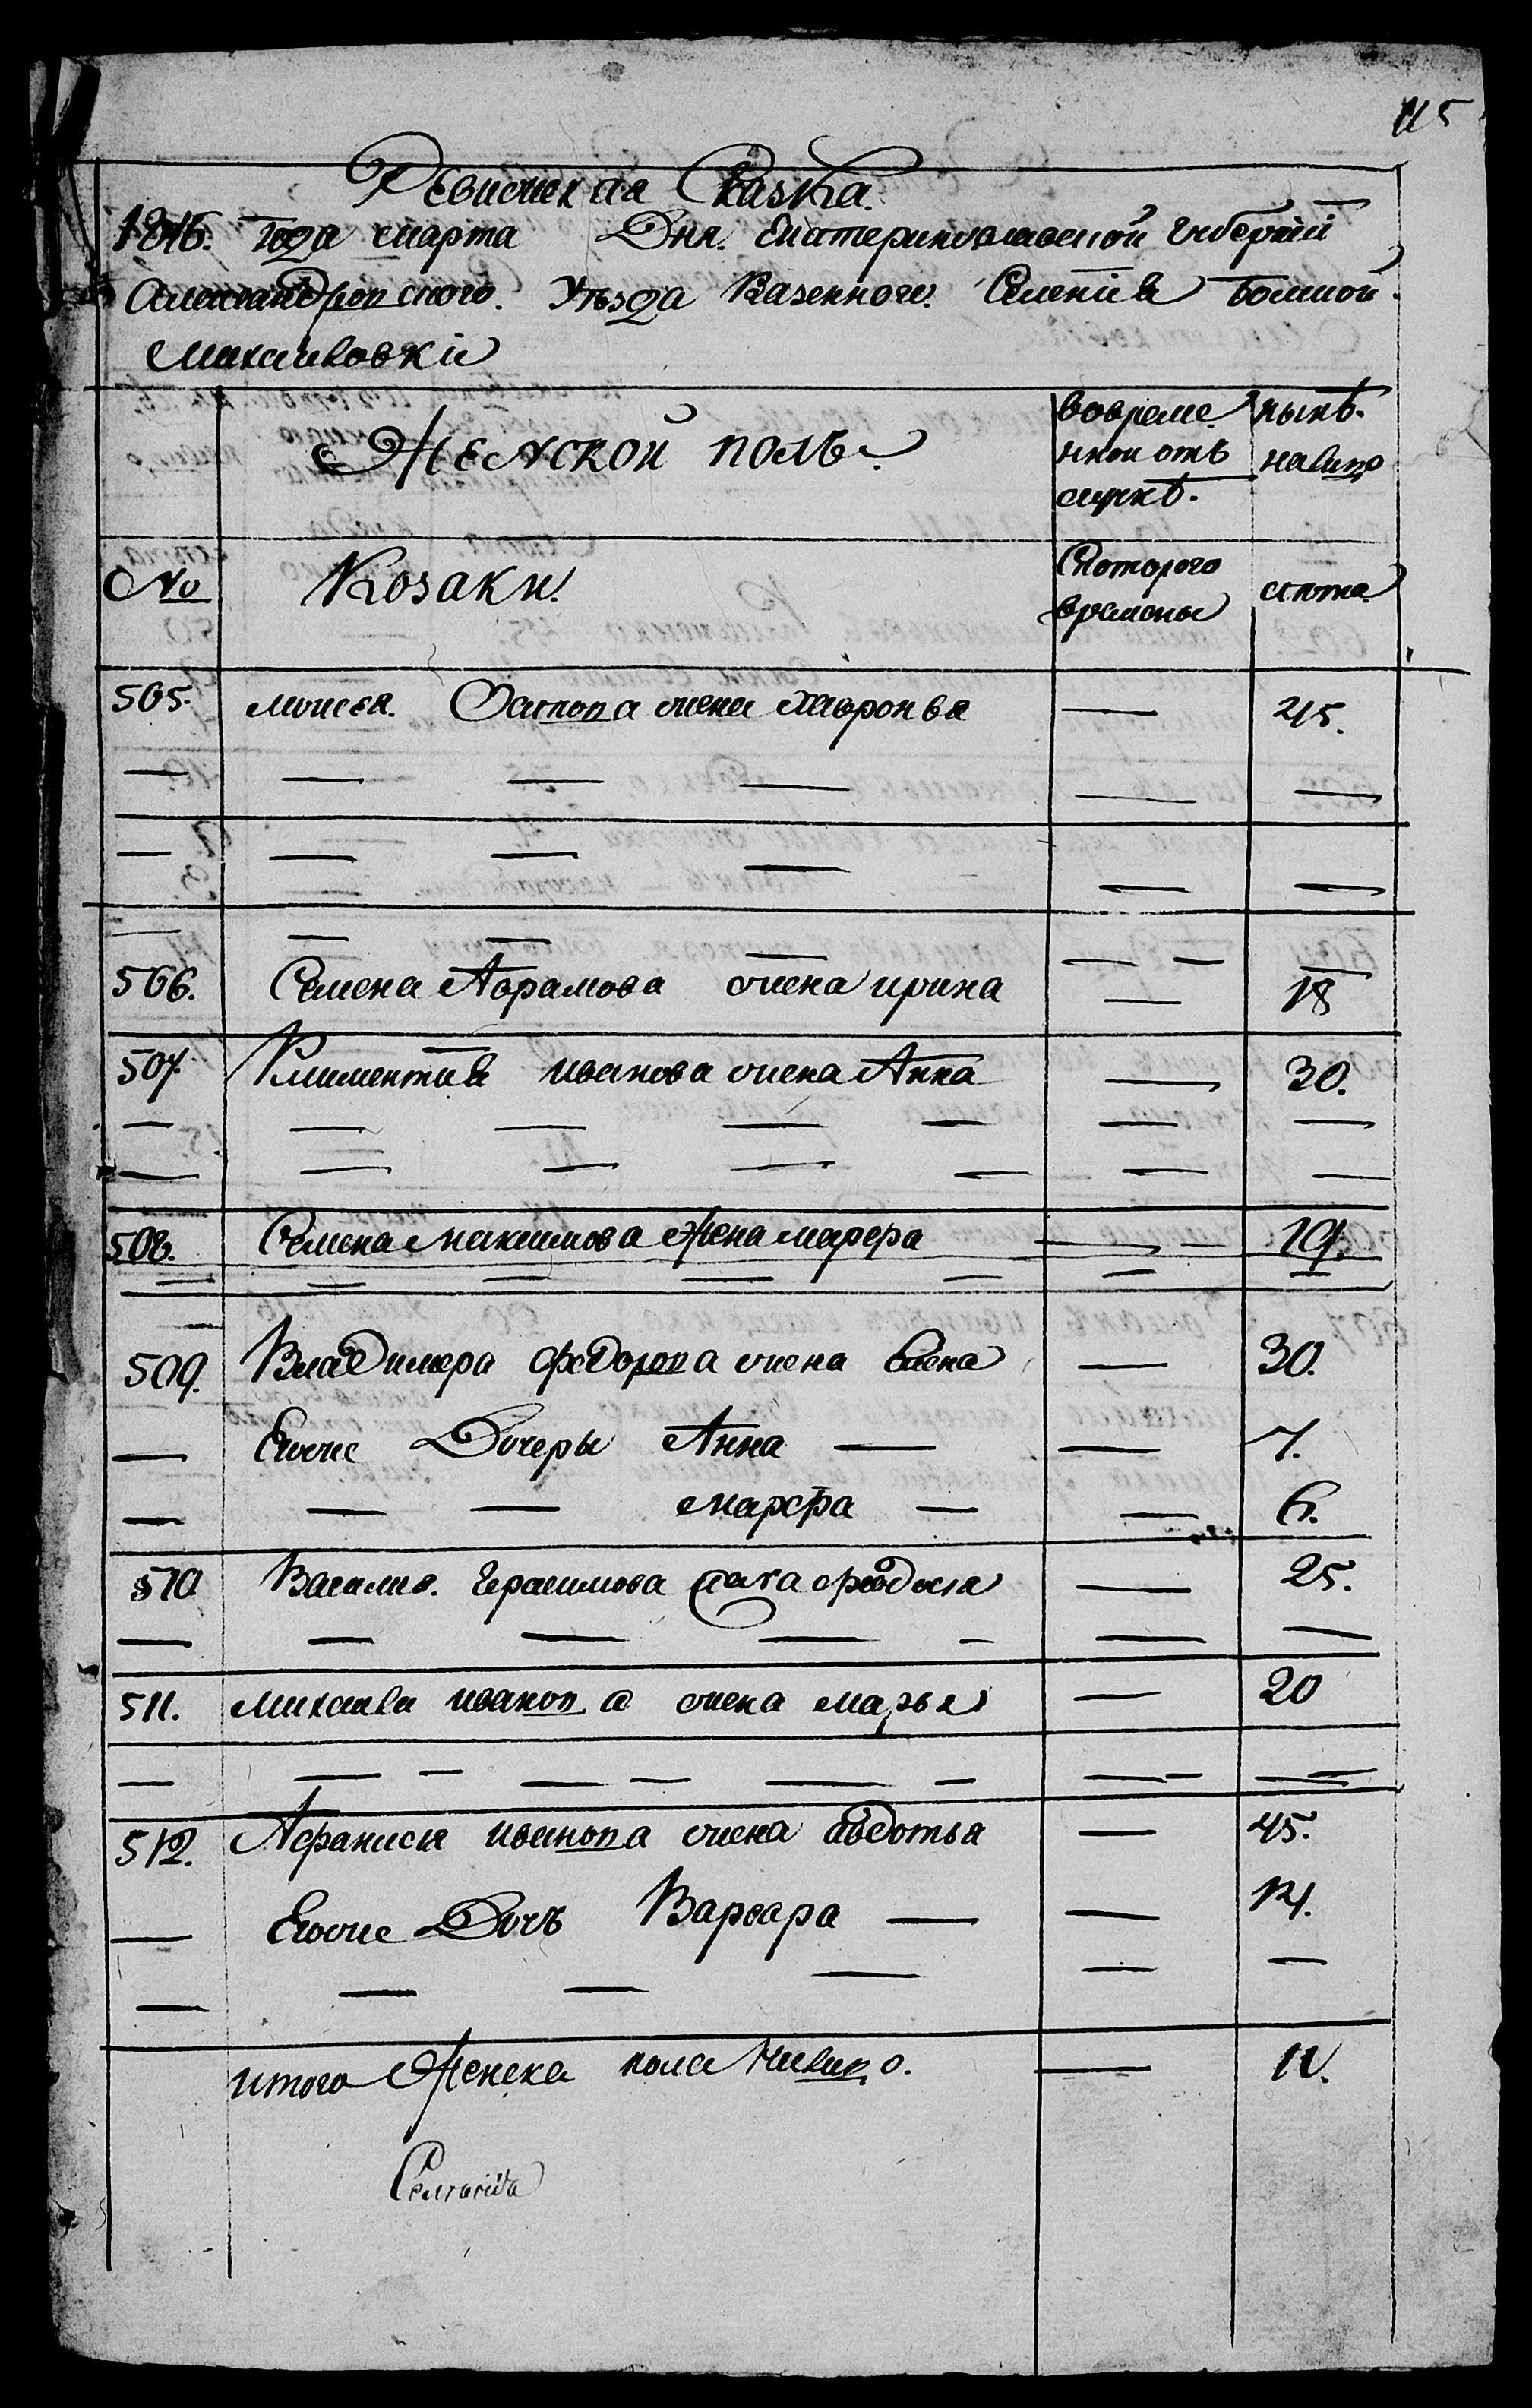 115
Ревизская Сказка.
1816. года марта Дня. Екатеринославской губернии
Александровского. Уѣзда Казенного. Селенія Болшой
Михайловки
Женской полъ.
вовреме- нынѣ-
нной отъ налицо
лучкѣ.
№ Козаки. Скоторого лѣта
времены
505. Моисея. Остапова жена Хавронья — 45.
— — — — — —
— — — — — —
— — — — — —
506. Семена Абрамова жена ирина — 18
507. Климентия иванова жена Анна — 30.
— — — — — — —
— — — — — — —
508. Семена Максимова Жена марфа — 19.
— — — — — — —
509. Владимера федорова жена Елена — 30.
— Егоже Дочеры Анна — — 7.
— — — марфа — — 6.
510 Василия. Герасимова жена феодосия — 25.
— — — — — — —
511. михаила иванова жена марья — 20
— — — — — — —
512. Афанисия иванова жена авдотья — 45.
— Егоже Дочъ Варвара — — 14.
— — — — — —
итого Женска пола налицо. — 11.